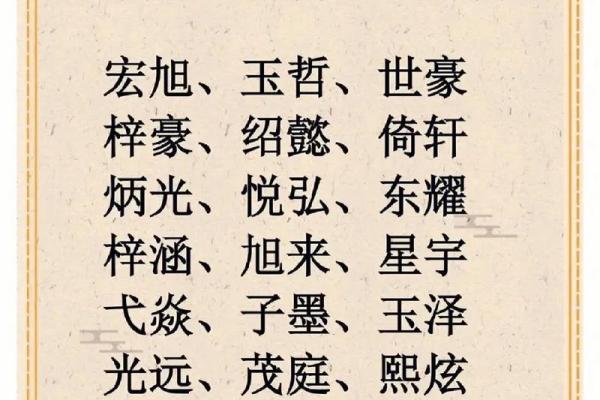 宏旭、玉哲、世豪
梓豪、绍懿、倚轩
炳光、悦弘、东耀
梓涵、旭来、星宇
弋焱、子墨、玉泽
光远、茂庭、熙炫